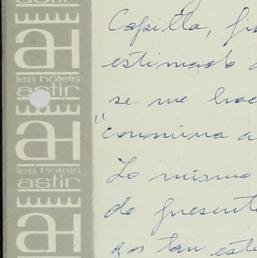 astir
aH
les hôtels
astir
aH
les hôtels
astir
aH
Capilla,
estimado
se me hac
"conmina a
Lo mismo
de present
tan